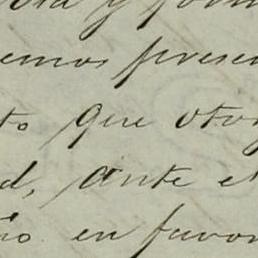 y
emos presen
to que otor
d, ante el
en favor